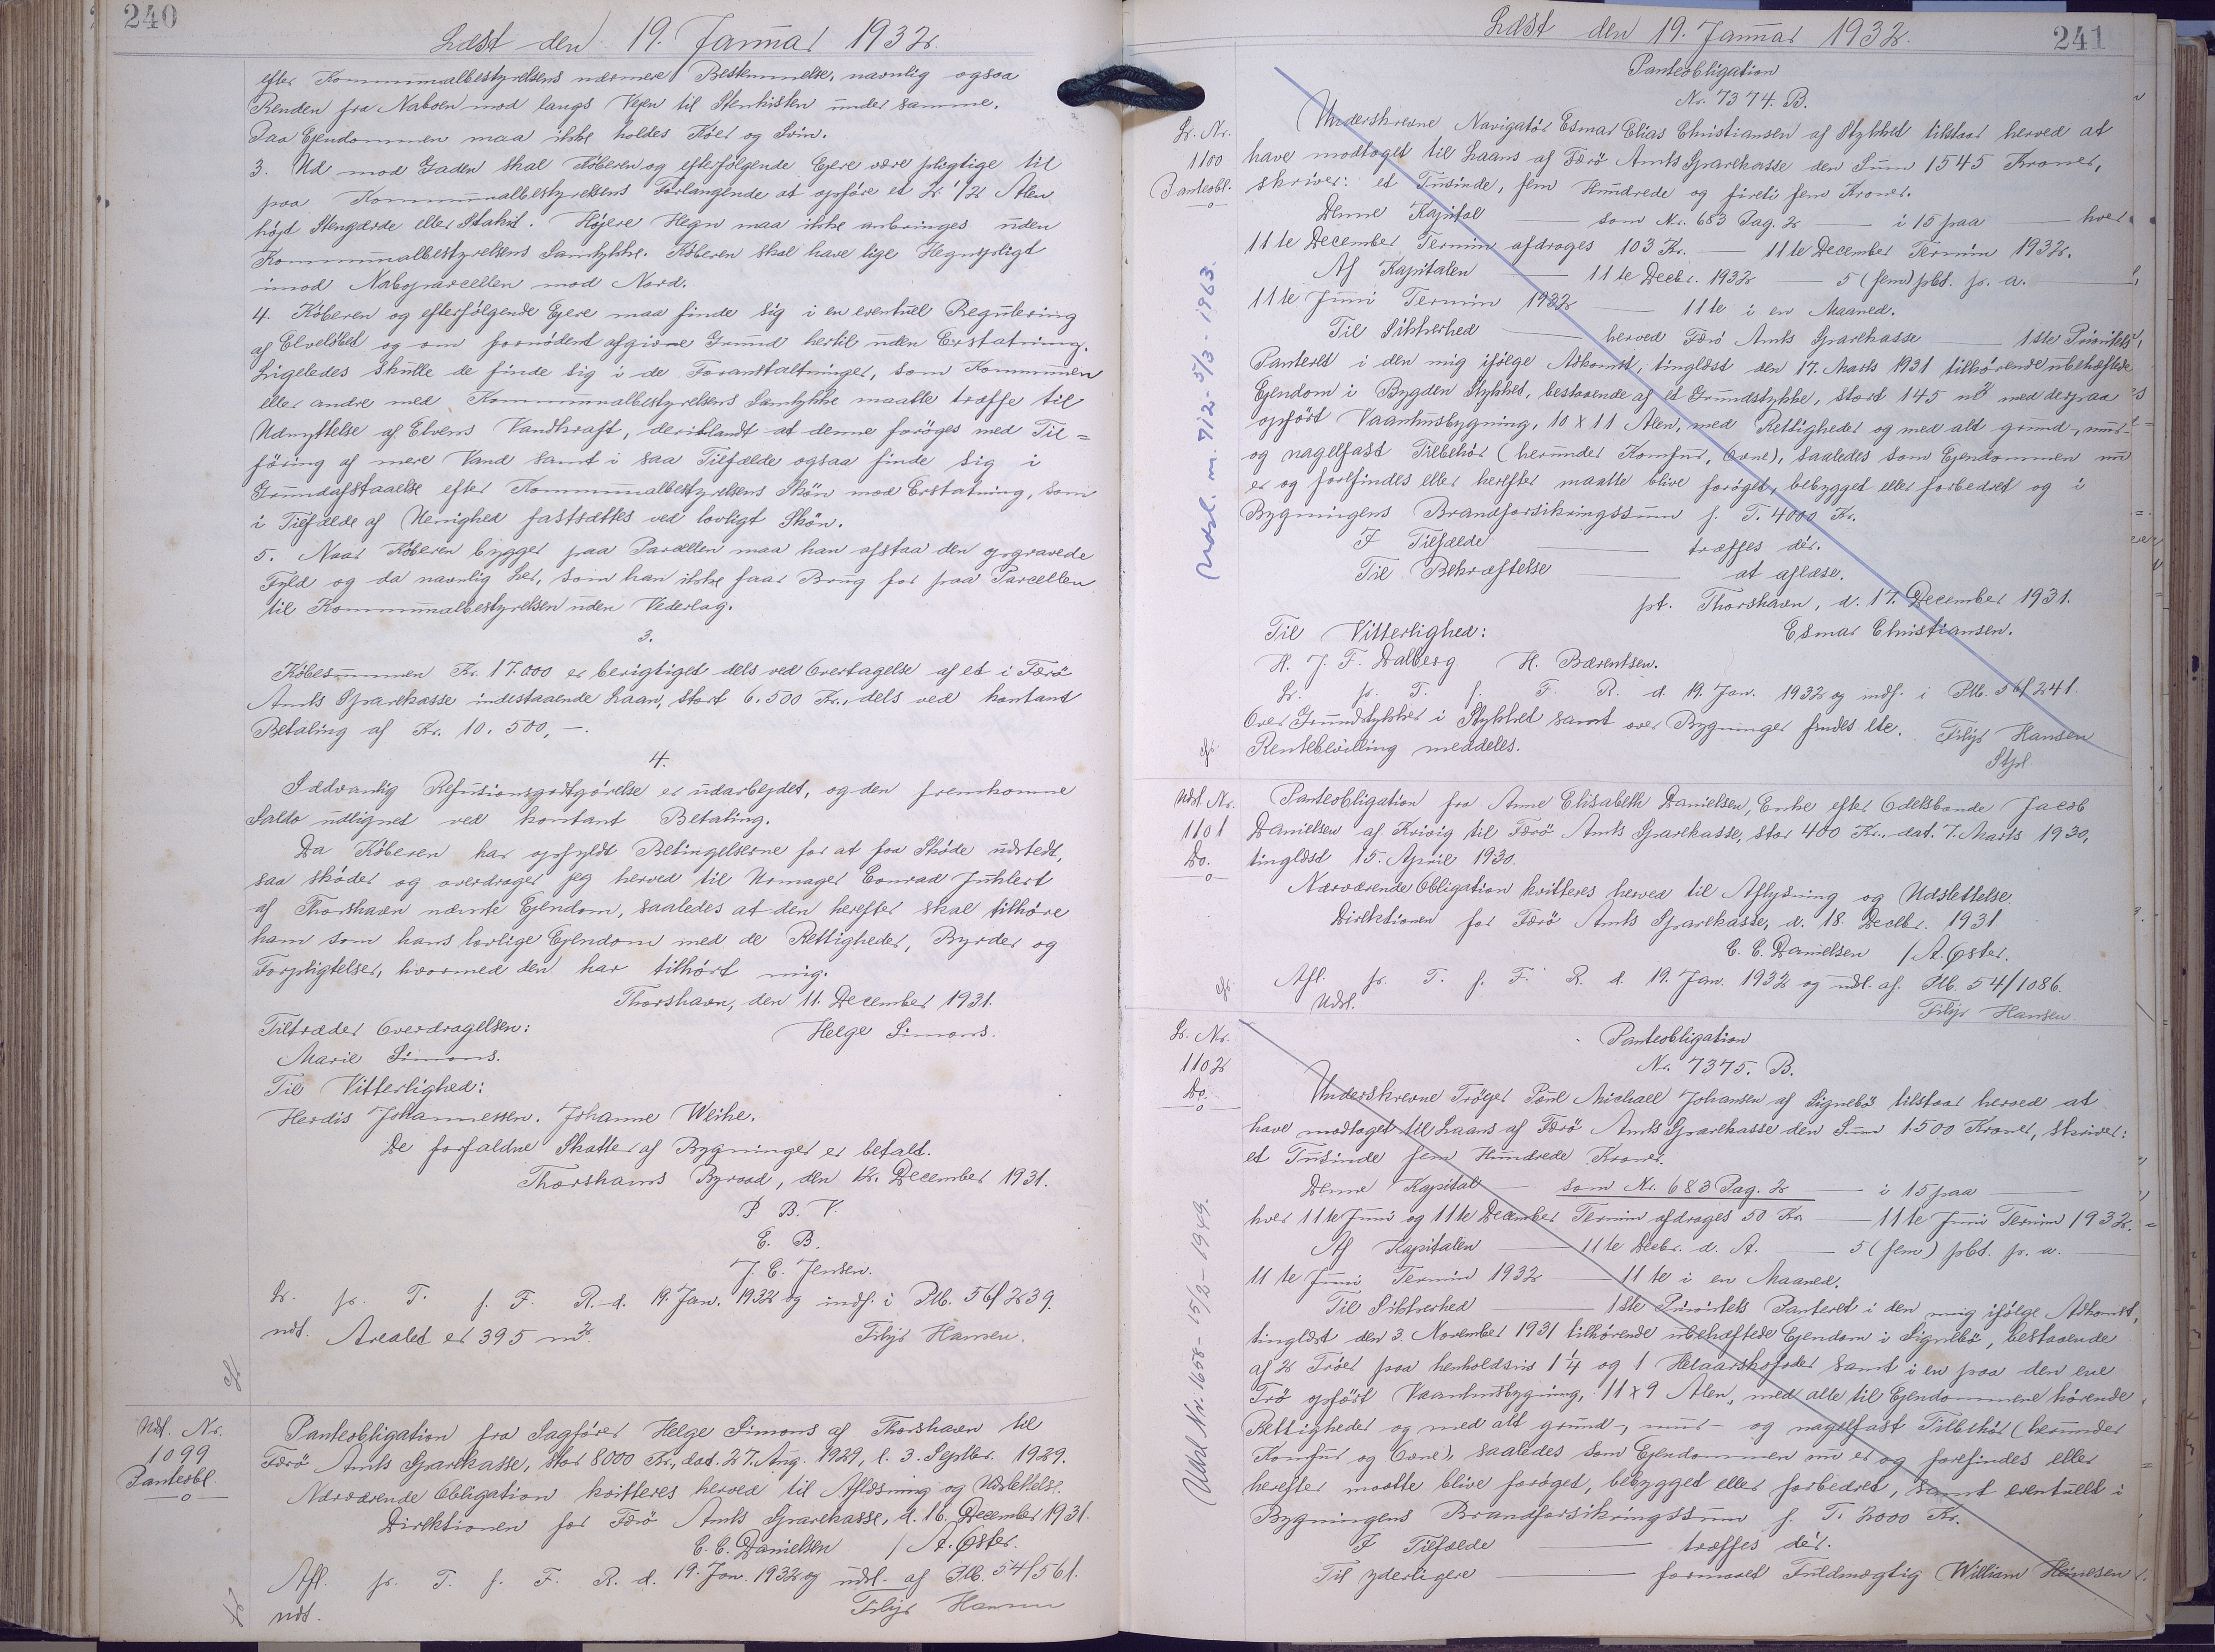 240
Læst den 19. Januar 1932.
efter Kommunalbestyrelsens nærmere Bestemmelse, navnlig ogsaa
Renden fra Naboen mod langs Vejen til Stenkisten under samme.
Paa Ejendommen maa ikke holdes Köer og Svin.
3. Ud mod Gaden skal Köberen og efterfölgende Ejere være pligtige til
paa Kommunalbestyrelsens Forlangende at opföre et 2 1/2 Alen
højt Stengærde eller Stakit. Højere Hegn maa ikke anbringes uden
Kommunalbestyrelsens Samtykke. Köberen skal have lige Hegnspligt
imod Naboparcellen mod Nord.
4. Köberen og efterfölgende Ejere maa finde sig i en eventuel Regulering
af Elvelöbet og om fornödent afgive Grund hertil uden Erstatning.
Ligeledes skulle de finde sig i de Foranstaltninger, som Kommunen
eller andre med Kommunalbestyrelsens Samtykke maatte træffe til
Udnyttelse af Elvens Vandkraft, deriblandt at denne foröges med Til=
föring af mere Vand samt i saa Tilfælde ogsaa finde sig i
Grundafstaaelse efter Kommunalbestyrelsens Skön mod Erstatning, som
i Tilfælde af Uenighed fastsættes ved lovligt Skön.
5. Naar Köberen bygger paa Parcellen maa han afstaa den opgravede
Fyld og da navnlig Ler, som han ikke faar Brug for paa Parcellen
til Kommunalbestyrelsen uden Vederlag.
3.
Köbesummen Kr. 17.000 er berigtiget dels ved Overtagelse af et i Færö
Amts Sparekasse indestaaende Laan, stort 6.500 Kr., dels ved kontant
Betaling af Kr. 10.500,-.
4.
Sædvanlig Refusionsopgörelse er udarbejdet, og den fremkomne
Saldo udlignet ved kontant Betaling.
Da Köberen har opfyldt Betingelserne for at faa Sköde udstedt,
saa sköder og overdrager jeg herved til Urmager Conrad Juhlert
af Thorshavn nævnte Ejendom, saaledes at den herefter skal tilhöre
ham som hans lovlige Ejendom med de Rettigheder, Byrder og
Forpligtelser, hvormed den har tilhört mig.
Thorshavn, den 11. December 1931.
Tiltræder Overdragelsen: Helge Simons.
Marie Simons.
Til Vitterlighed:
Herdis Johannessen. Johanne Weihe.
De forfaldne Skatter af Bygninger er betalt.
Thorshavns Byraad, den 12. December 1931.
P. B. V.
E. B.
J. C. Jensen.
L. p. T. f. F. R. d. 19. Jan. 1932 og indf. i Ptb. 56/239.
udt. Arealet er 395 m2 Filip Hansen.
Udsl. Nr. 1099 Panteobl.
Panteobligation fra Sagförer Helge Simons af Thorshavn til
Færö Amts Sparekasse, stor 8000 Kr., dat. 27. Aug. 1929, l. 3. Septbr. 1929.
Nærværende Obligation kvitteres herved til Aflæsning og Udslettelse.
Direktionen for Færö Amts Sparekasse, d. 16. December 1931.
C. C. Danielsen / A. Øster.
Afl. p. T. f. F. R. d. 19. Jan. 1932 og udsl. af Ptb. 54/561.
udt. Filip Hansen
Læst den 19. Januar 1932.
241
Panteobligation
Nr. 7374. B.
L. Nr. 1100 Panteobl.
Underskrevne Navigatör Esmar Elias Christiansen af Stykket tilstaar herved at
have modtaget til Laans af Færö Amts Sparekasse den Sum 1545 Kroner,
skriver: et Tusinde, fem Hundrede og fireti fem Kroner.
Denne Kapital — som Nr. 683 Pag. 2 — i 15 paa — hver
11te December Termin afdrages 103 Kr. — 11te December Termin 1932.
Af Kapitalen — 11te Decbr. 1932 — 5 (fem) pCt. p. a. —
11te Juni Termin 1932 — 11te i en Maaned.
Til Sikkerhed — herved Færö Amts Sparekasse — 1ste Prioritets
Panteret i den mig ifölge Adkomst, tinglæst den 17. Marts 1931 tilhörende ubehæftede
Ejendom i Bygden Stykket, bestaaende af et Grundstykke, stort 145 m2 med derpaa
opfört Vaanhusbygning, 10 x 11 Alen, med Rettigheder og med alt grund-, mur-
og nagelfast Tilbehör (herunder Komfur, Ovne), saaledes som Ejendommen nu
er og forefindes eller herefter maatte blive foröget, bebygget eller forbedret og i
Bygningens Brandforsikringssum f. T. 4000 Kr.
I Tilfælde — træffes dér.
Til Bekræftelse — at aflæse.
pt. Thorshavn, d. 17. December 1931.
Til Vitterlighed: Esmar Christiansen.
H. J. F. Dalberg H. Bærentsen.
L. p. T. f. F. R. d. 19. Jan. 1932 og indf. i Ptb. 56/241.
Over Grundstykker i Stykket samt over Bygninger findes Ite. Filip Hansen
Rentebevilling meddeles.
Udsl. m. 712 - 5/3 - 1963.
Udsl. Nr. 1101 Do.
Panteobligation fra Anne Elisabeth Danielsen, Enke efter Odelsbonde Jacob
Danielsen af Kvivig til Færö Amts Sparekasse, stor 400 Kr., dat. 7. Marts 1930,
tinglæst 15. April 1930.
Nærværende Obligation kvitteres herved til Aflysning og Udslettelse.
Direktionen for Færö Amts Sparekasse, d. 18. Decbr. 1931.
C. C. Danielsen / A. Øster.
Afl. p. T. f. F. R. d. 19. Jan. 1932 og udsl. af Ptb. 54/1086.
Udsl. Filip Hansen
L. Nr. 1102 Do.
Panteobligation
Nr. 7375. B.
Underskrevne Tröger Poul Michael Johansen af Signebö tilstaar herved at
have modtaget til Laans af Færö Amts Sparekasse den Sum 1.500 Kroner, skriver:
et Tusinde fem Hundrede Kroner.
Denne Kapital — som Nr. 683 Pag. 2 — i 15 paa —
hver 11te Juni og 11te December Termin afdrages 50 Kr. — 11te Juni Termin 1932.
Af Kapitalen — 11te Decbr. d. A. — 5 (fem) pCt. p. a. —
11te Juni Termin 1932 — 11te i en Maaned.
Til Sikkerhed — 1ste Prioritets Panteret i den mig ifölge Adkomst,
tinglæst den 3. November 1931 tilhörende ubehæftede Ejendom i Signebö, bestaaende
af 2 Tröer paa henholdsvis 1 1/4 og 1 Helaarskofoder samt i en paa den ene
Trö opfört Vaanhusbygning, 11 x 9 Alen, med alle til Ejendommene hörende
Rettigheder og med alt grund-, mur- og nagelfast Tilbehör (herunder
Komfur og Ovne), saaledes som Ejendommen nu er og forefindes eller
herefter maatte blive foröget, bebygget eller forbedret, samt eventuelt i
Bygningens Brandforsikringssum f. T. 2000 Kr.
I Tilfælde — træffes dér.
Til yderligere — formaaet Fuldmægtig William Heinesen
Udsl. Nr. 1658 - 15/2 - 1949.